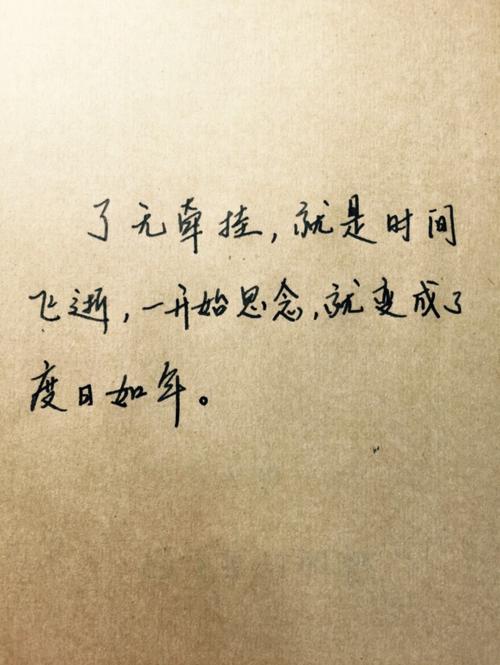 了无牵挂,就是时间
飞逝,一开始思念,就变成了
度日如年。